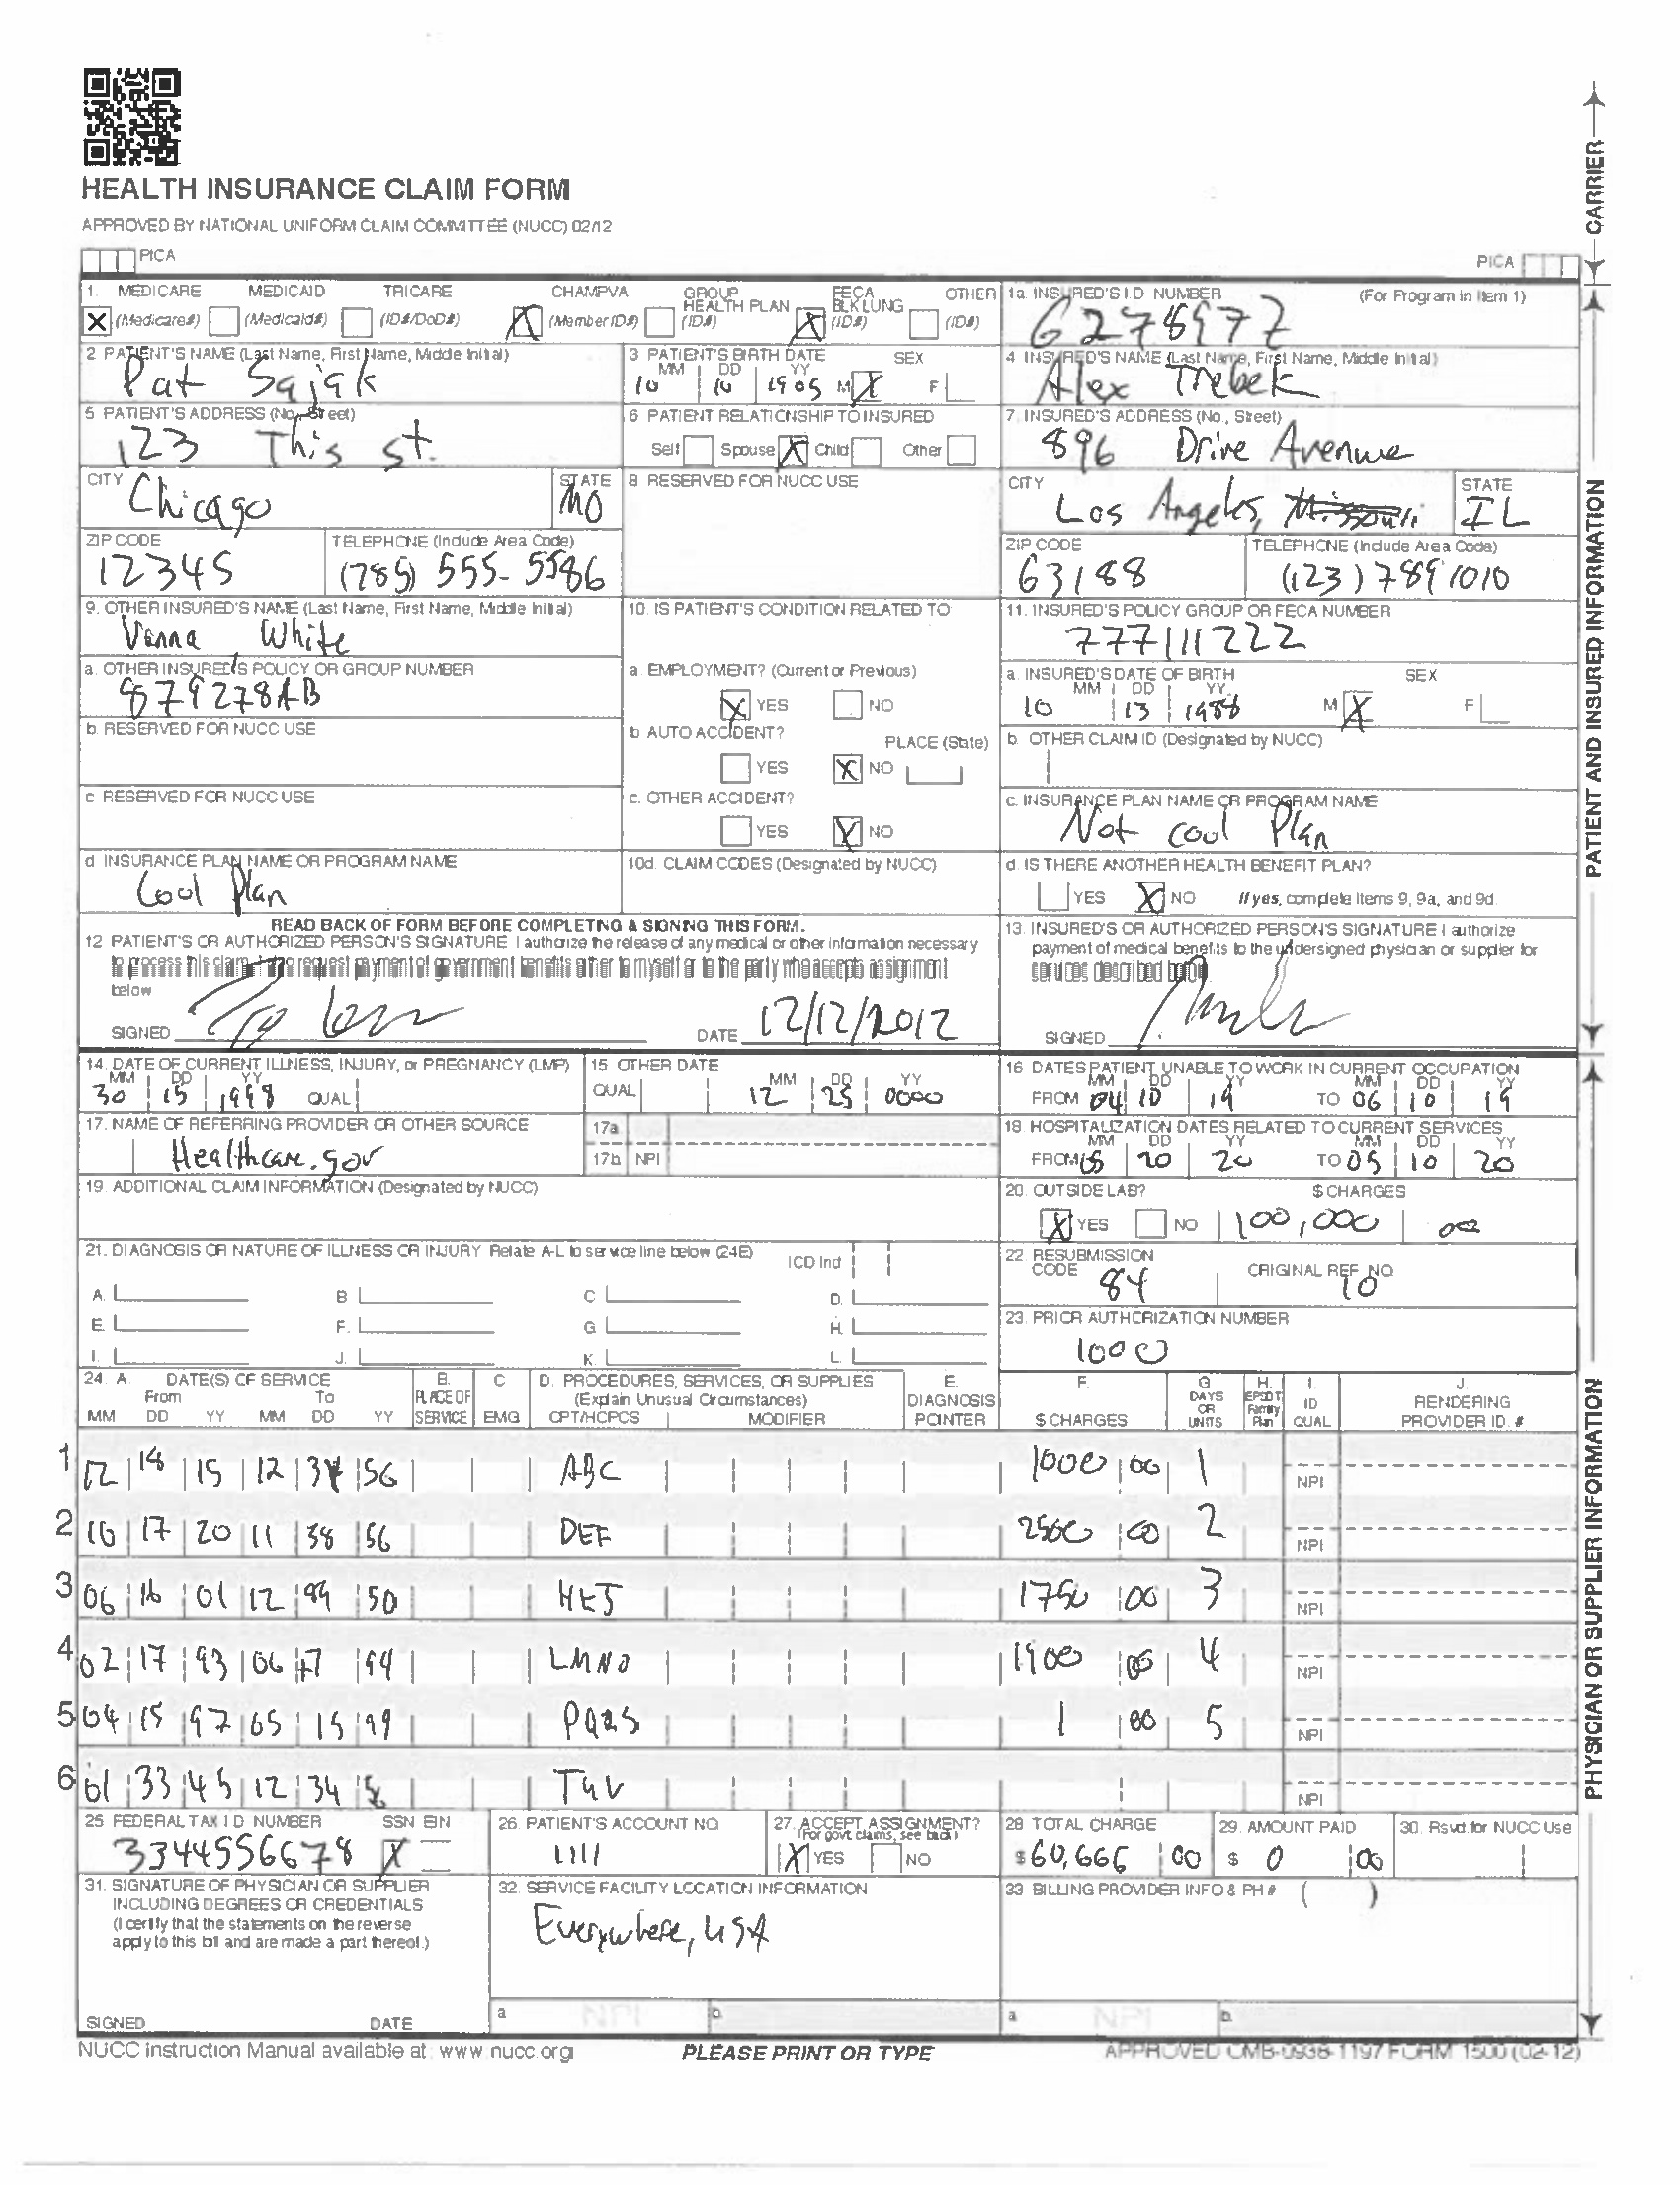 HEALTH INSURANCE CLAIM FORM
APPROVED BY NATIONAL UNIFORM CLAIM COMMITTEE (NUCC) 02/12
PICA PICA
CARRIER
1. MEDICARE MEDICAID TRICARE CHAMPVA GROUP HEALTH PLAN FECA BLK LUNG OTHER
X (Medicare#) (Medicaid#) (ID#/DoD#) X (Member ID#) (ID#) X (ID#) (ID#)
1a. INSURED'S I.D NUMBER (For Program in Item 1)
6278977
2 PATIENT'S NAME (Last Name, First Name, Middle Initial)
Pat Sajak
3 PATIENT'S BIRTH DATE SEX
MM DD YY
10 10 1905 M X F
4 INSURED'S NAME (Last Name, First Name, Middle Initial)
Alex Trebek
5 PATIENT'S ADDRESS (No., Street)
123 This st.
6 PATIENT RELATIONSHIP TO INSURED
Self Spouse X Child Other
7. INSURED'S ADDRESS (No., Street)
896 Drive Avenue
CITY STATE
Chicago MO
8 RESERVED FOR NUCC USE
CITY STATE
Los Angeles, Missouri IL
ZIP CODE TELEPHONE (Include Area Code)
12345 (785) 555-5586
ZIP CODE TELEPHONE (Include Area Code)
63188 (123) 7891010
9. OTHER INSURED'S NAME (Last Name, First Name, Middle Initial)
Vanna, White
10. IS PATIENT'S CONDITION RELATED TO
11. INSURED'S POLICY GROUP OR FECA NUMBER
777111222
a. OTHER INSURED'S POLICY OR GROUP NUMBER
879278AB
a. EMPLOYMENT? (Current or Previous)
X YES NO
a. INSURED'S DATE OF BIRTH SEX
MM DD YY
10 13 1988 M X F
b. RESERVED FOR NUCC USE
b AUTO ACCIDENT? PLACE (State)
YES X NO
b. OTHER CLAIM ID (Designated by NUCC)
c RESERVED FOR NUCC USE
c. OTHER ACCIDENT?
YES X NO
c. INSURANCE PLAN NAME OR PROGRAM NAME
Not cool Plan
d INSURANCE PLAN NAME OR PROGRAM NAME
Cool Plan
10d. CLAIM CODES (Designated by NUCC)
d. IS THERE ANOTHER HEALTH BENEFIT PLAN?
YES X NO If yes, complete items 9, 9a, and 9d.
READ BACK OF FORM BEFORE COMPLETING & SIGNING THIS FORM.
12 PATIENT'S OR AUTHORIZED PERSON'S SIGNATURE I authorize the release of any medical or other information necessary
to process this claim. I also request payment of government benefits either to myself or to the party who accepts assignment
below
SIGNED DATE 12/12/2012
13. INSURED'S OR AUTHORIZED PERSON'S SIGNATURE I authorize
payment of medical benefits to the undersigned physician or supplier for
services described below
SIGNED
PATIENT AND INSURED INFORMATION
14. DATE OF CURRENT ILLNESS, INJURY, or PREGNANCY (LMP)
MM DD YY
30 15 1998 QUAL
15 OTHER DATE
QUAL MM DD YY
12 25 0000
16 DATES PATIENT UNABLE TO WORK IN CURRENT OCCUPATION
MM DD YY MM DD YY
FROM 04 10 19 TO 06 10 19
17. NAME OF REFERRING PROVIDER OR OTHER SOURCE
Healthcare.gov
17a
17b NPI
18. HOSPITALIZATION DATES RELATED TO CURRENT SERVICES
MM DD YY MM DD YY
FROM 05 20 20 TO 05 10 20
19. ADDITIONAL CLAIM INFORMATION (Designated by NUCC)
20. OUTSIDE LAB? $ CHARGES
X YES NO 100,000 00
21. DIAGNOSIS OR NATURE OF ILLNESS OR INJURY Relate A-L to service line below (24E) ICD Ind
A. B C D.
E F. G H.
I. J. K. L.
22. RESUBMISSION CODE ORIGINAL REF. NO
84 10
23. PRIOR AUTHORIZATION NUMBER
1000
24. A. DATE(S) OF SERVICE B. C D. PROCEDURES, SERVICES, OR SUPPLIES E. F. G. H. I. J.
From To PLACE OF (Explain Unusual Circumstances) DIAGNOSIS DAYS OR EPSDT Family ID RENDERING
MM DD YY MM DD YY SERVICE EMG CPT/HCPCS MODIFIER POINTER $ CHARGES UNITS Plan QUAL PROVIDER ID. #
1 12 18 15 12 34 56 ABC 1000 00 1 NPI
2 10 17 20 11 38 56 DEF 2500 00 2 NPI
3 06 16 01 12 99 50 HIJ 1750 00 3 NPI
4 02 17 93 06 17 94 LMNO 1900 00 4 NPI
5 04 15 97 05 15 99 PQRS 1 00 5 NPI
6 01 33 45 12 34 TUV NPI
25 FEDERAL TAX I D NUMBER SSN EIN
3344556678 X
26. PATIENT'S ACCOUNT NO
1111
27. ACCEPT ASSIGNMENT?
(For govt claims, see back)
X YES NO
28 TOTAL CHARGE
$ 60,666 00
29. AMOUNT PAID
$ 0 00
30. Rsvd for NUCC Use
31. SIGNATURE OF PHYSICIAN OR SUPPLIER
INCLUDING DEGREES OR CREDENTIALS
(I certify that the statements on the reverse
apply to this bill and are made a part thereof.)
SIGNED DATE
32. SERVICE FACILITY LOCATION INFORMATION
Everywhere, USA
a NPI b.
33 BILLING PROVIDER INFO & PH # ( )
a NPI b.
PHYSICIAN OR SUPPLIER INFORMATION
NUCC Instruction Manual available at: www.nucc.org
PLEASE PRINT OR TYPE
APPROVED OMB-0938-1197 FORM 1500 (02-12)